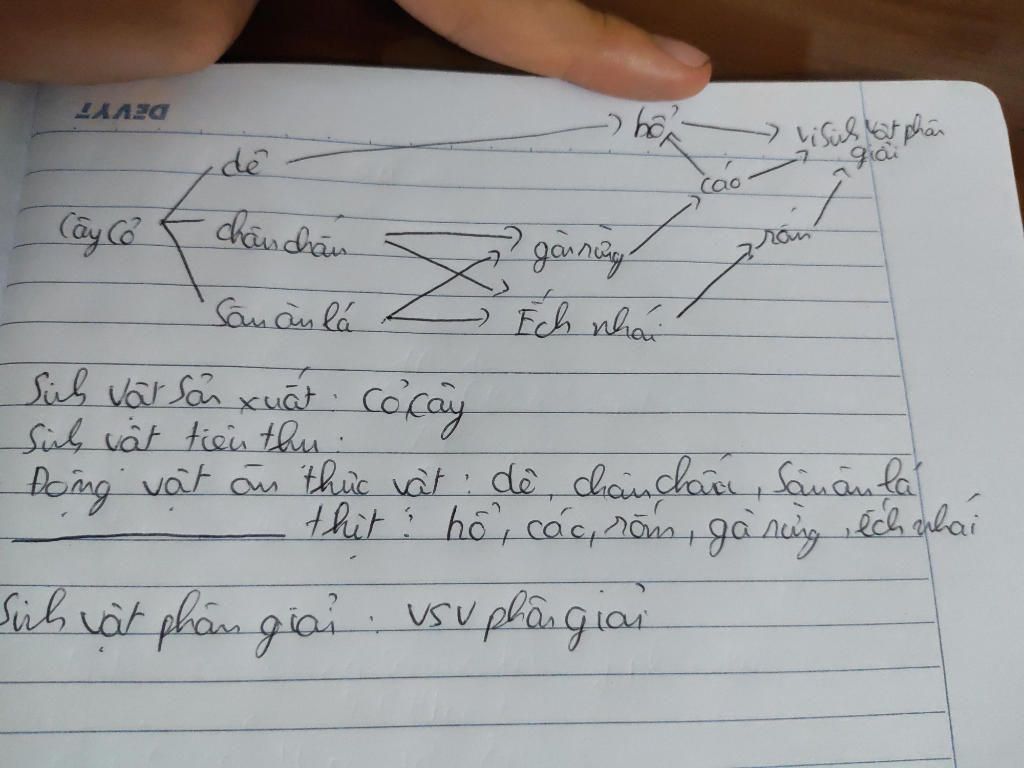 DEVYT
hổ vi sinh vật phân
giải
dê
cáo
Cây cỏ châu chấu gà rừng rắn
Sâu ăn lá Ếch nhái
Sinh vật sản xuất: cỏ cây
Sinh vật tiêu thu:
Động vật ăn thực vật: dê, châu chấu, Sâu ăn lá
thịt: hổ, các, rắn, gà rừng, ếch nhái
Sinh vật phân giải: VSV phân giải